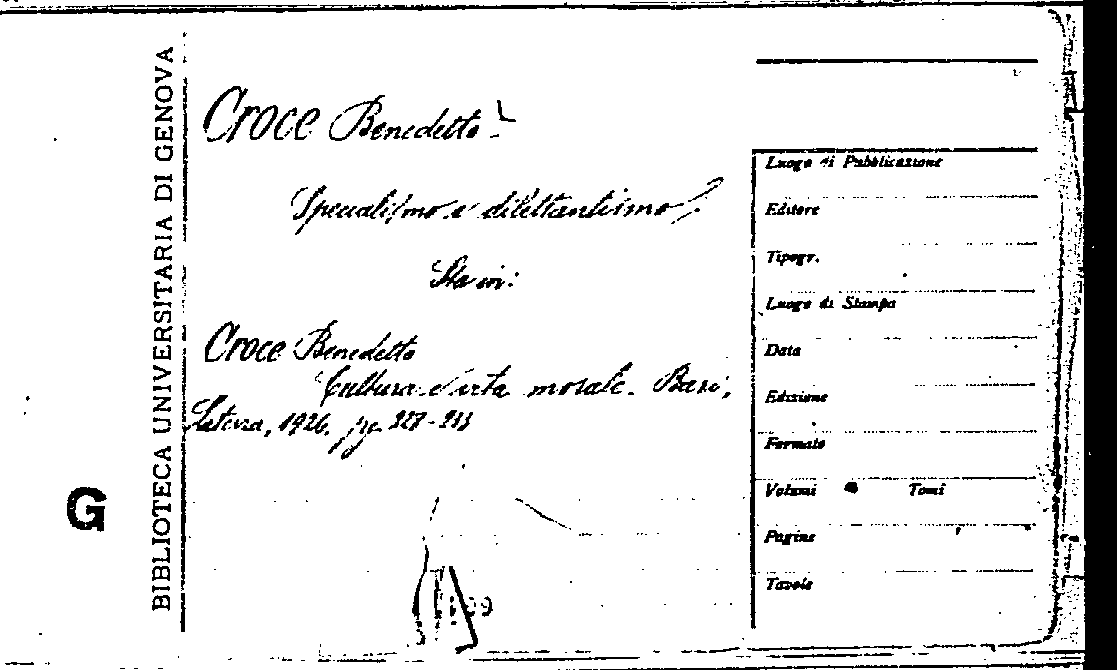 BIBLIOTECA UNIVERSITARIA DI GENOVA
G
Croce Benedetto
Specialismo e dilettantismo
Sta in:
Croce Benedetto
Cultura e vita morale. Bari,
Laterza, 1926. pg. 227-233
Luogo di Pubblicazione
Editore
Tipogr.
Luogo di Stampa
Data
Edizione
Formato
Volumi Tomi
Pagine
Tavole